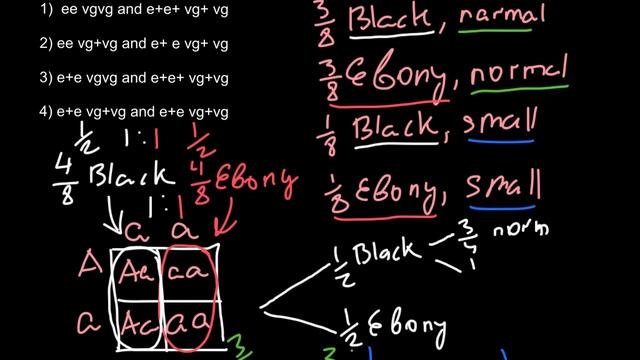 1) ee vgvg and e+e+ vg+ vg
2) ee vg+vg and e+ e vg+ vg
3) e+e vgvg and e+e+ vg+vg
4) e+e vg+vg and e+e vg+vg
1/2 1:1 1/2
4/8 Black 4/8 Ebony
1:1
a a
A Aa aa
a Aa aa
3/8 Black, normal
3/8 Ebony, normal
1/8 Black, small
1/8 Ebony, small
1/2 Black 3/4 norm
1
1/2 Ebony